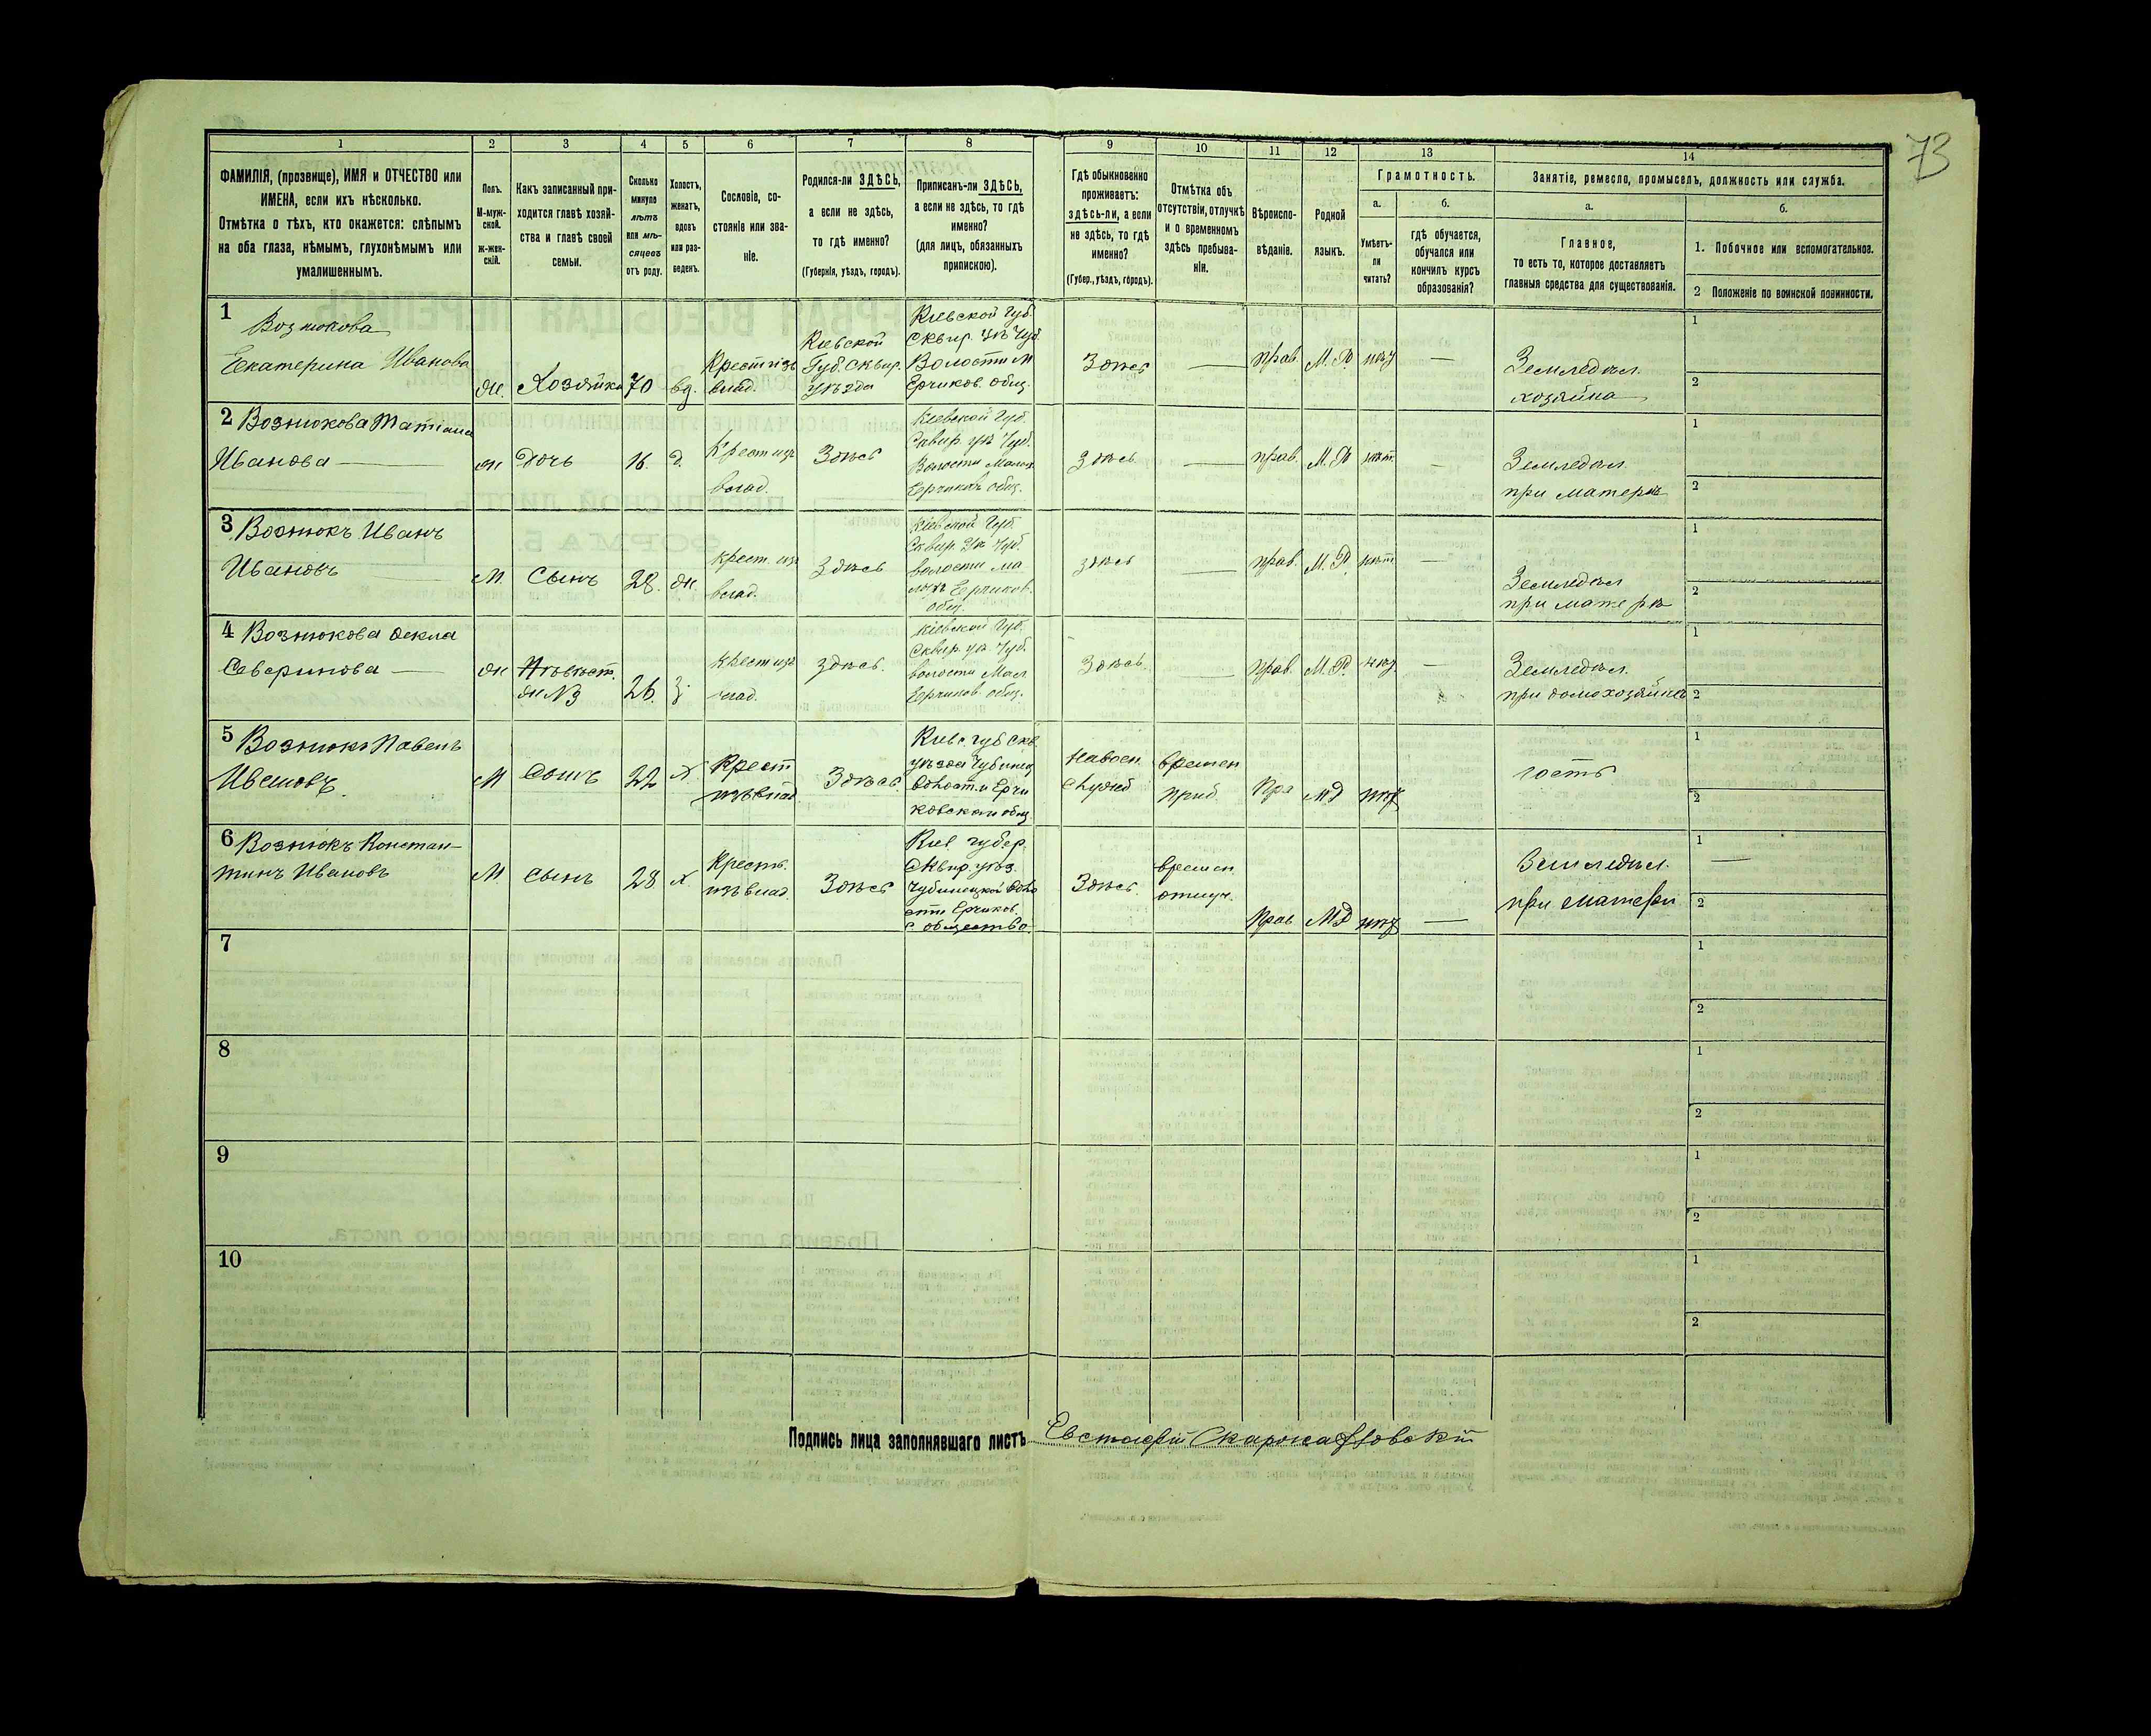 73
1
2
3
4
5
6
7
8
9
10
11
12
13
14
ФАМИЛІЯ, (прозвище), ИМЯ и ОТЧЕСТВО или
ИМЕНА, если ихъ нѣсколько.
Отмѣтка о тѣхъ, кто окажется: слѣпымъ
на оба глаза, нѣмымъ, глухонѣмымъ или
умалишеннымъ.
Полъ.
М-муж-
ской.
ж-жен-
скій.
Какъ записанный при-
ходится главѣ хозяй-
ства и главѣ своей
семьи.
Сколько
минуло
лѣтъ
или мѣ-
сяцевъ
отъ роду.
Холостъ,
женатъ,
вдовъ
или раз-
веденъ.
Сословіе, со-
стояніе или зва-
ніе.
Родился-ли ЗДѢСЬ,
а если не здѣсь,
то гдѣ именно?
(Губернія, уѣздъ, городъ).
Приписанъ-ли ЗДѢСЬ,
а если не здѣсь, то гдѣ
именно?
(для лицъ, обязанныхъ
припискою).
Гдѣ обыкновенно
проживаетъ:
здѣсь-ли, а если
не здѣсь, то гдѣ
именно?
(Губер., уѣздъ, городъ).
Отмѣтка объ
отсутствіи, отлучкѣ
и о временномъ
здѣсь пребыва-
ніи.
Вѣроиспо-
вѣданіе.
Родной
языкъ.
Грамотность.
а.
Умѣетъ-
ли
читать?
б.
гдѣ обучается,
обучался или
кончилъ курсъ
образованія?
Занятіе, ремесло, промыселъ, должность или служба.
а.
Главное,
то есть то, которое доставляетъ
главныя средства для существованія.
б.
1. Побочное или вспомогательное.
2 Положеніе по воинской повинности.
1
Вознюкова
Екатерина Иванова
Ж.
Хозяйка
70
вд.
Крест изъ
влад.
Кіевской
Губ. Сквир.
Уѣзда
Кіевской Губ.
Сквир. Уѣ Чуб.
Волости М
Ерчиков. общ.
Здѣсь
прав.
М. Р.
нѣт
Земледѣл.
хозяйка
1
2
2 Вознюкова Татіана
Иванова
ж
Дочь
16.
д.
Крест изъ
влад.
Здѣсь
Кіевской Губ.
Сквир. уѣ Чуб.
Волости Малои
Ерчиковъ общ.
Здѣсь
прав.
М. Р
нѣт
Земледѣл.
при матерѣ
1
2
3 Вознюкъ Иванъ
Ивановъ
М
Сынъ
28.
ж.
крест. изъ
влад.
Здѣсь
Кіевской Губ.
Сквир. Уѣ Чуб.
волости Ма
Ерчиков.
общ.
здѣсь
прав.
М. Р.
нѣт
Земледѣл
при матерѣ
1
2
4 Вознюкова Ѳекла
Северинова
ж
Невѣст.
ж №3
26.
з.
крест изъ
влад.
здѣсь.
Кіевской Губ.
Сквир. уѣ Чуб.
волости Мал
Ерчиков. общ.
Здѣсь.
прав.
М. Р.
нѣт.
Земледѣл.
при домохозяйкѣ
1
2
5 Вознюкъ Павелъ
Ивановъ.
М
Сынъ
22
Х
Крест
изъ влад
Здѣсь.
Кіевс. губ Скв.
уѣзда Чубинец
волости Ерчи
ковскаго общ
На воен.
службѣ
времен
приб
Пра
МР
нѣт
гость
1
2
6 Вознюкъ Констан-
тинъ Ивановъ
М.
Сынъ
28
х.
Крестъ.
изъ влад.
Здѣсь
Кіев губер.
Сквир. уѣз.
Чубинецкой воло
сти Ерчиков.
общество.
Здѣсь.
времен.
отлуч.
Прав
МР
нѣт
Земледѣл.
при матери
1
2
7
1
2
8
1
2
9
1
2
10
1
2
Подпись лица заполнявшаго листъ
Евстафій